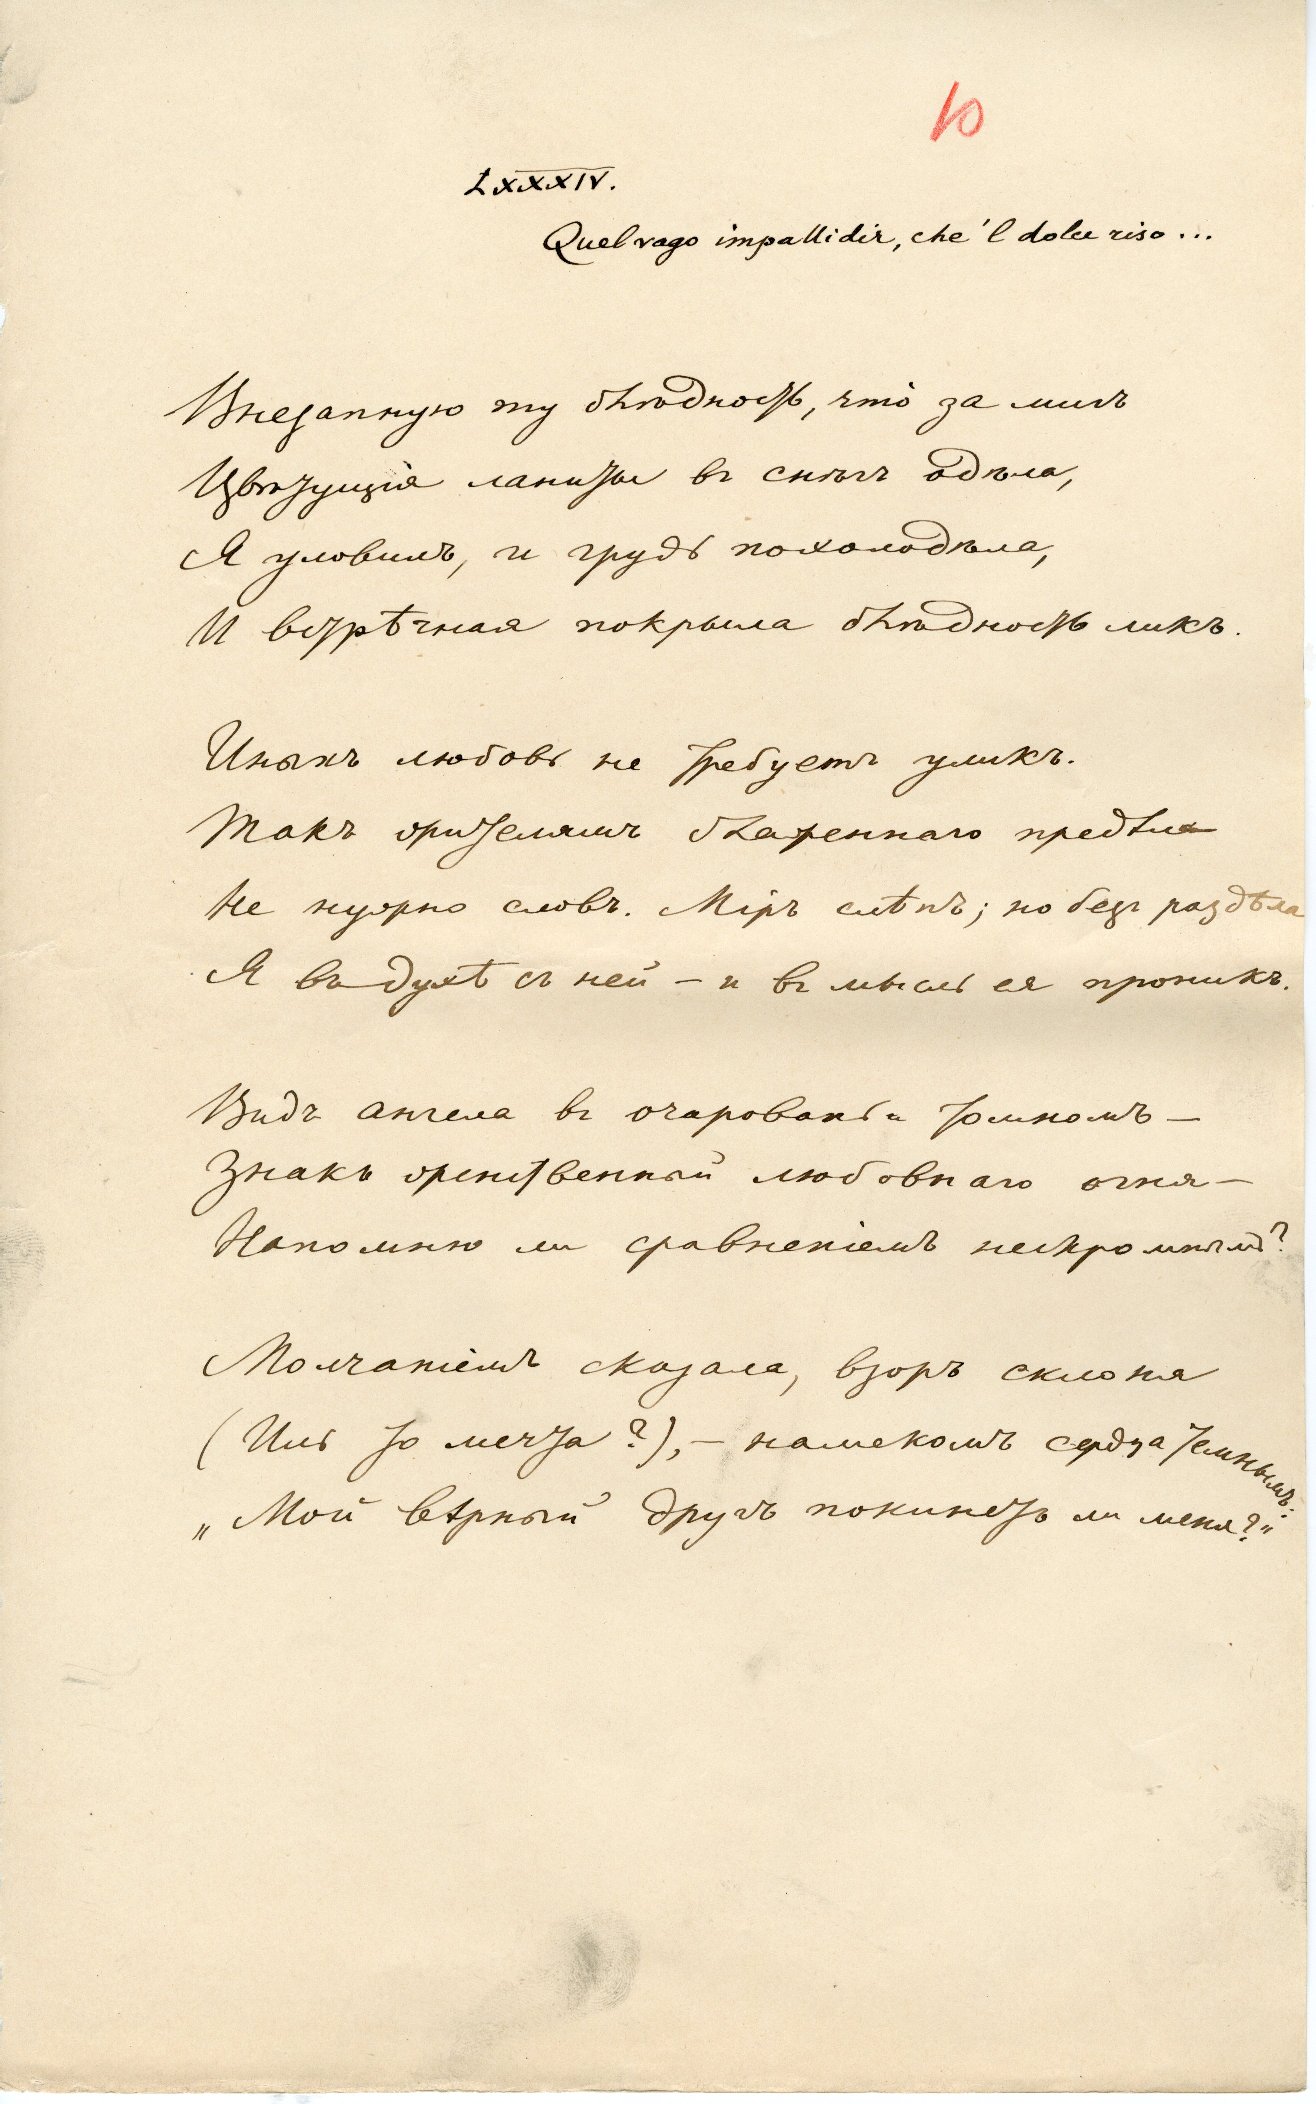 10
LXXXIV.
Quel vago impallidir, che 'l dolce riso...
Внезапную ту блѣдность, что́ за мигъ
Цвѣтущія ланиты въ снѣгъ одѣла,
Я уловилъ, и грудь похолодѣла,
И встрѣчная покрыла блѣдность ликъ.
Иныхъ любовь не требуетъ уликъ.
Такъ зрителямъ блаженнаго предѣла
Не нужно словъ. Міръ слѣпъ; но безъ раздѣла
Я въ духѣ съ ней – и въ мысль ея проникъ.
Видъ ангела въ очарованьи томномъ –
Знакъ женственный любовнаго огня –
Напомню ли сравненіемъ нескромнымъ?
Молчаніемъ сказала, взоръ склоня
(Иль то мечта?), – намекомъ сердца темнымъ:
„Мой вѣрный другъ покинетъ ли меня?"